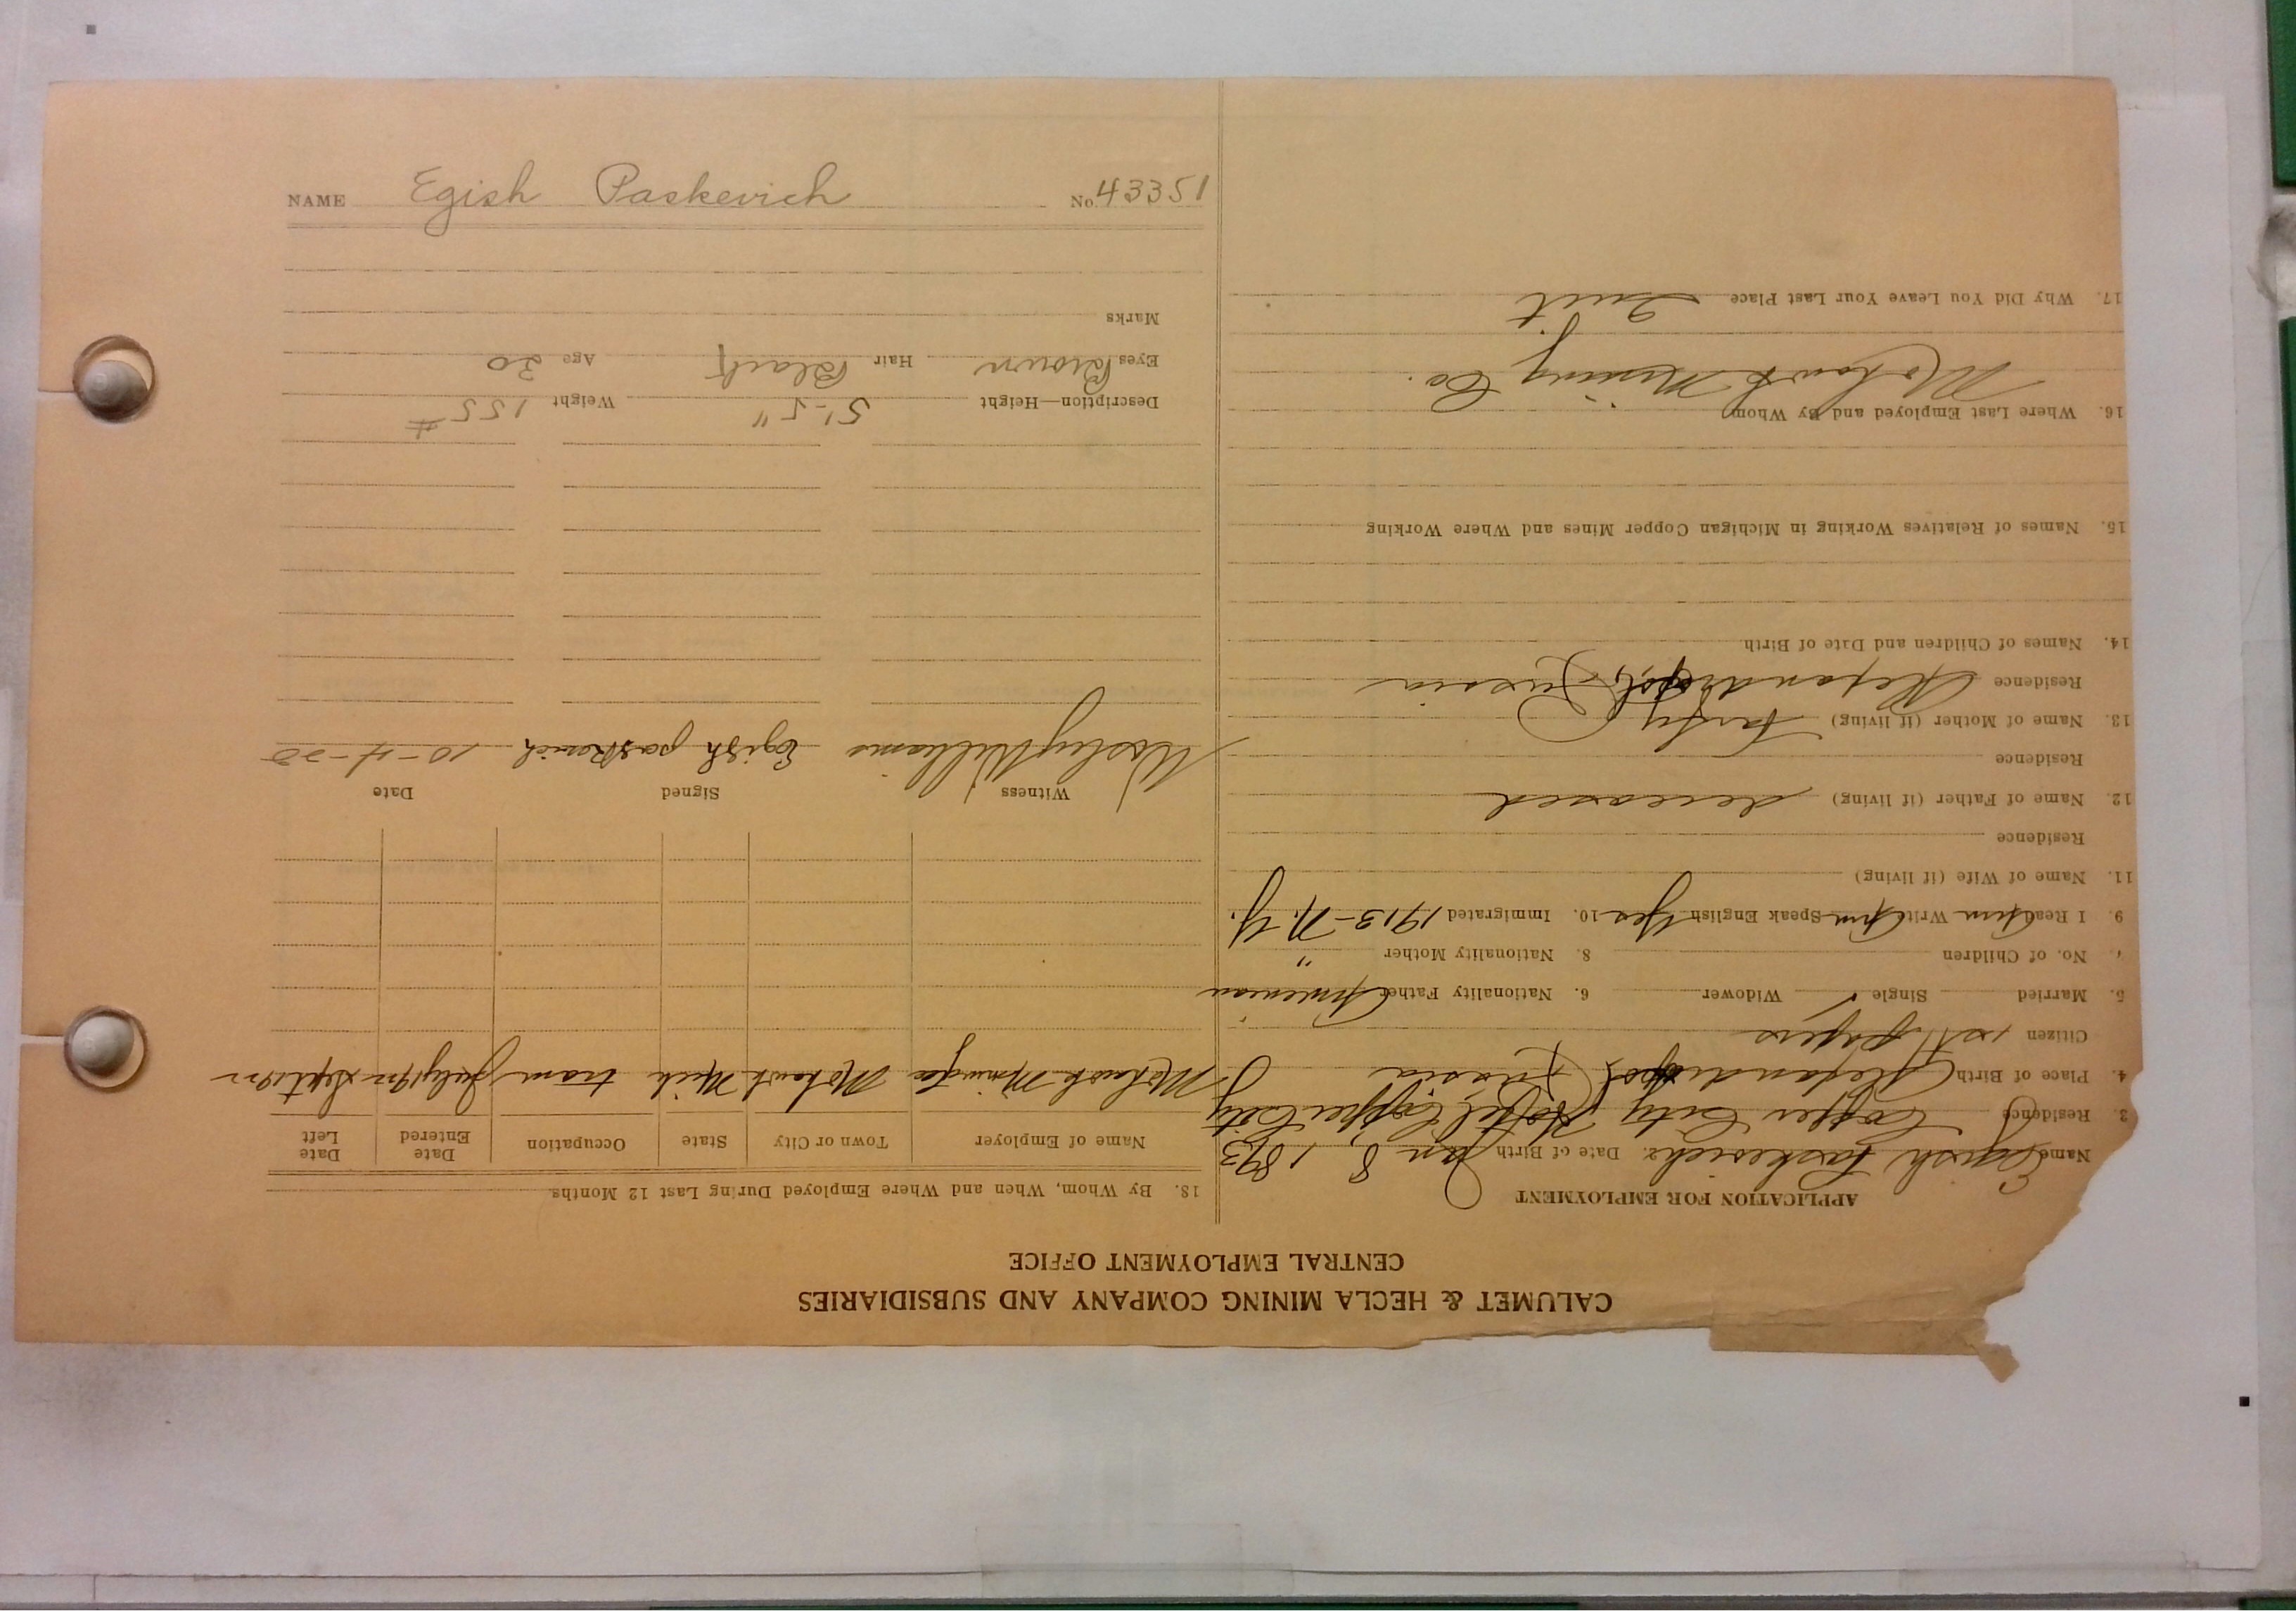 CALUMET & HECLA MINING COMPANY AND SUBSIDIARIES
CENTRAL EMPLOYMENT OFFICE
APPLICATION FOR EMPLOYMENT
Name Egish Paskevich 2. Date of Birth Jan 8, 1893
3. Residence Copper City Hotel, Copper City
4. Place of Birth Alexandropol, Russia
Citizen 1st papers
5. Married Single ✓ Widower 6. Nationality Father Armenian
No. of Children 8. Nationality Mother "
9. I Read Arm Write Arm Speak English Yes 10. Immigrated 1913 - N.Y.
11. Name of Wife (if living)
Residence
12. Name of Father (if living) deceased
Residence
13. Name of Mother (if living)
Residence Alexandropol, Russia
14. Names of Children and Date of Birth
15. Names of Relatives Working in Michigan Copper Mines and Where Working
16. Where Last Employed and By Whom
Mohawk Mining Co.
17. Why Did You Leave Your Last Place Quit
18. By Whom, When and Where Employed During Last 12 Months
Name of Employer Town or City State Occupation Date Entered Date Left
Mohawk Mining Co Mohawk Mich tram July 1922 Sept 1922
Witness Signed Date
Wesley Williams Egish paskevich 10-4-
Description—Height 5'-5" Weight 155 #
Eyes Brown Hair Black Age 30
Marks
NAME Egish Paskevich No. 43351